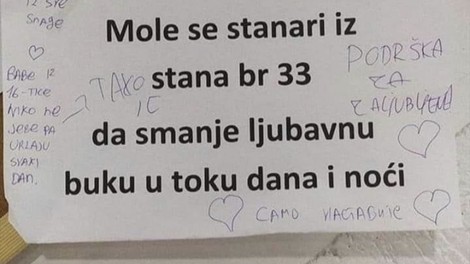 IZ SVE
SNAGE
BABE IZ
16-TICE
NIKO NE
JEBE PA
URLAJU
SVAKI
DAN.
Mole se stanari iz
stana br 33
da smanje ljubavnu
buku u toku dana i noći
TAKO
JE
PODRŠKA
ZA
ZALJUBLJENE
САМО